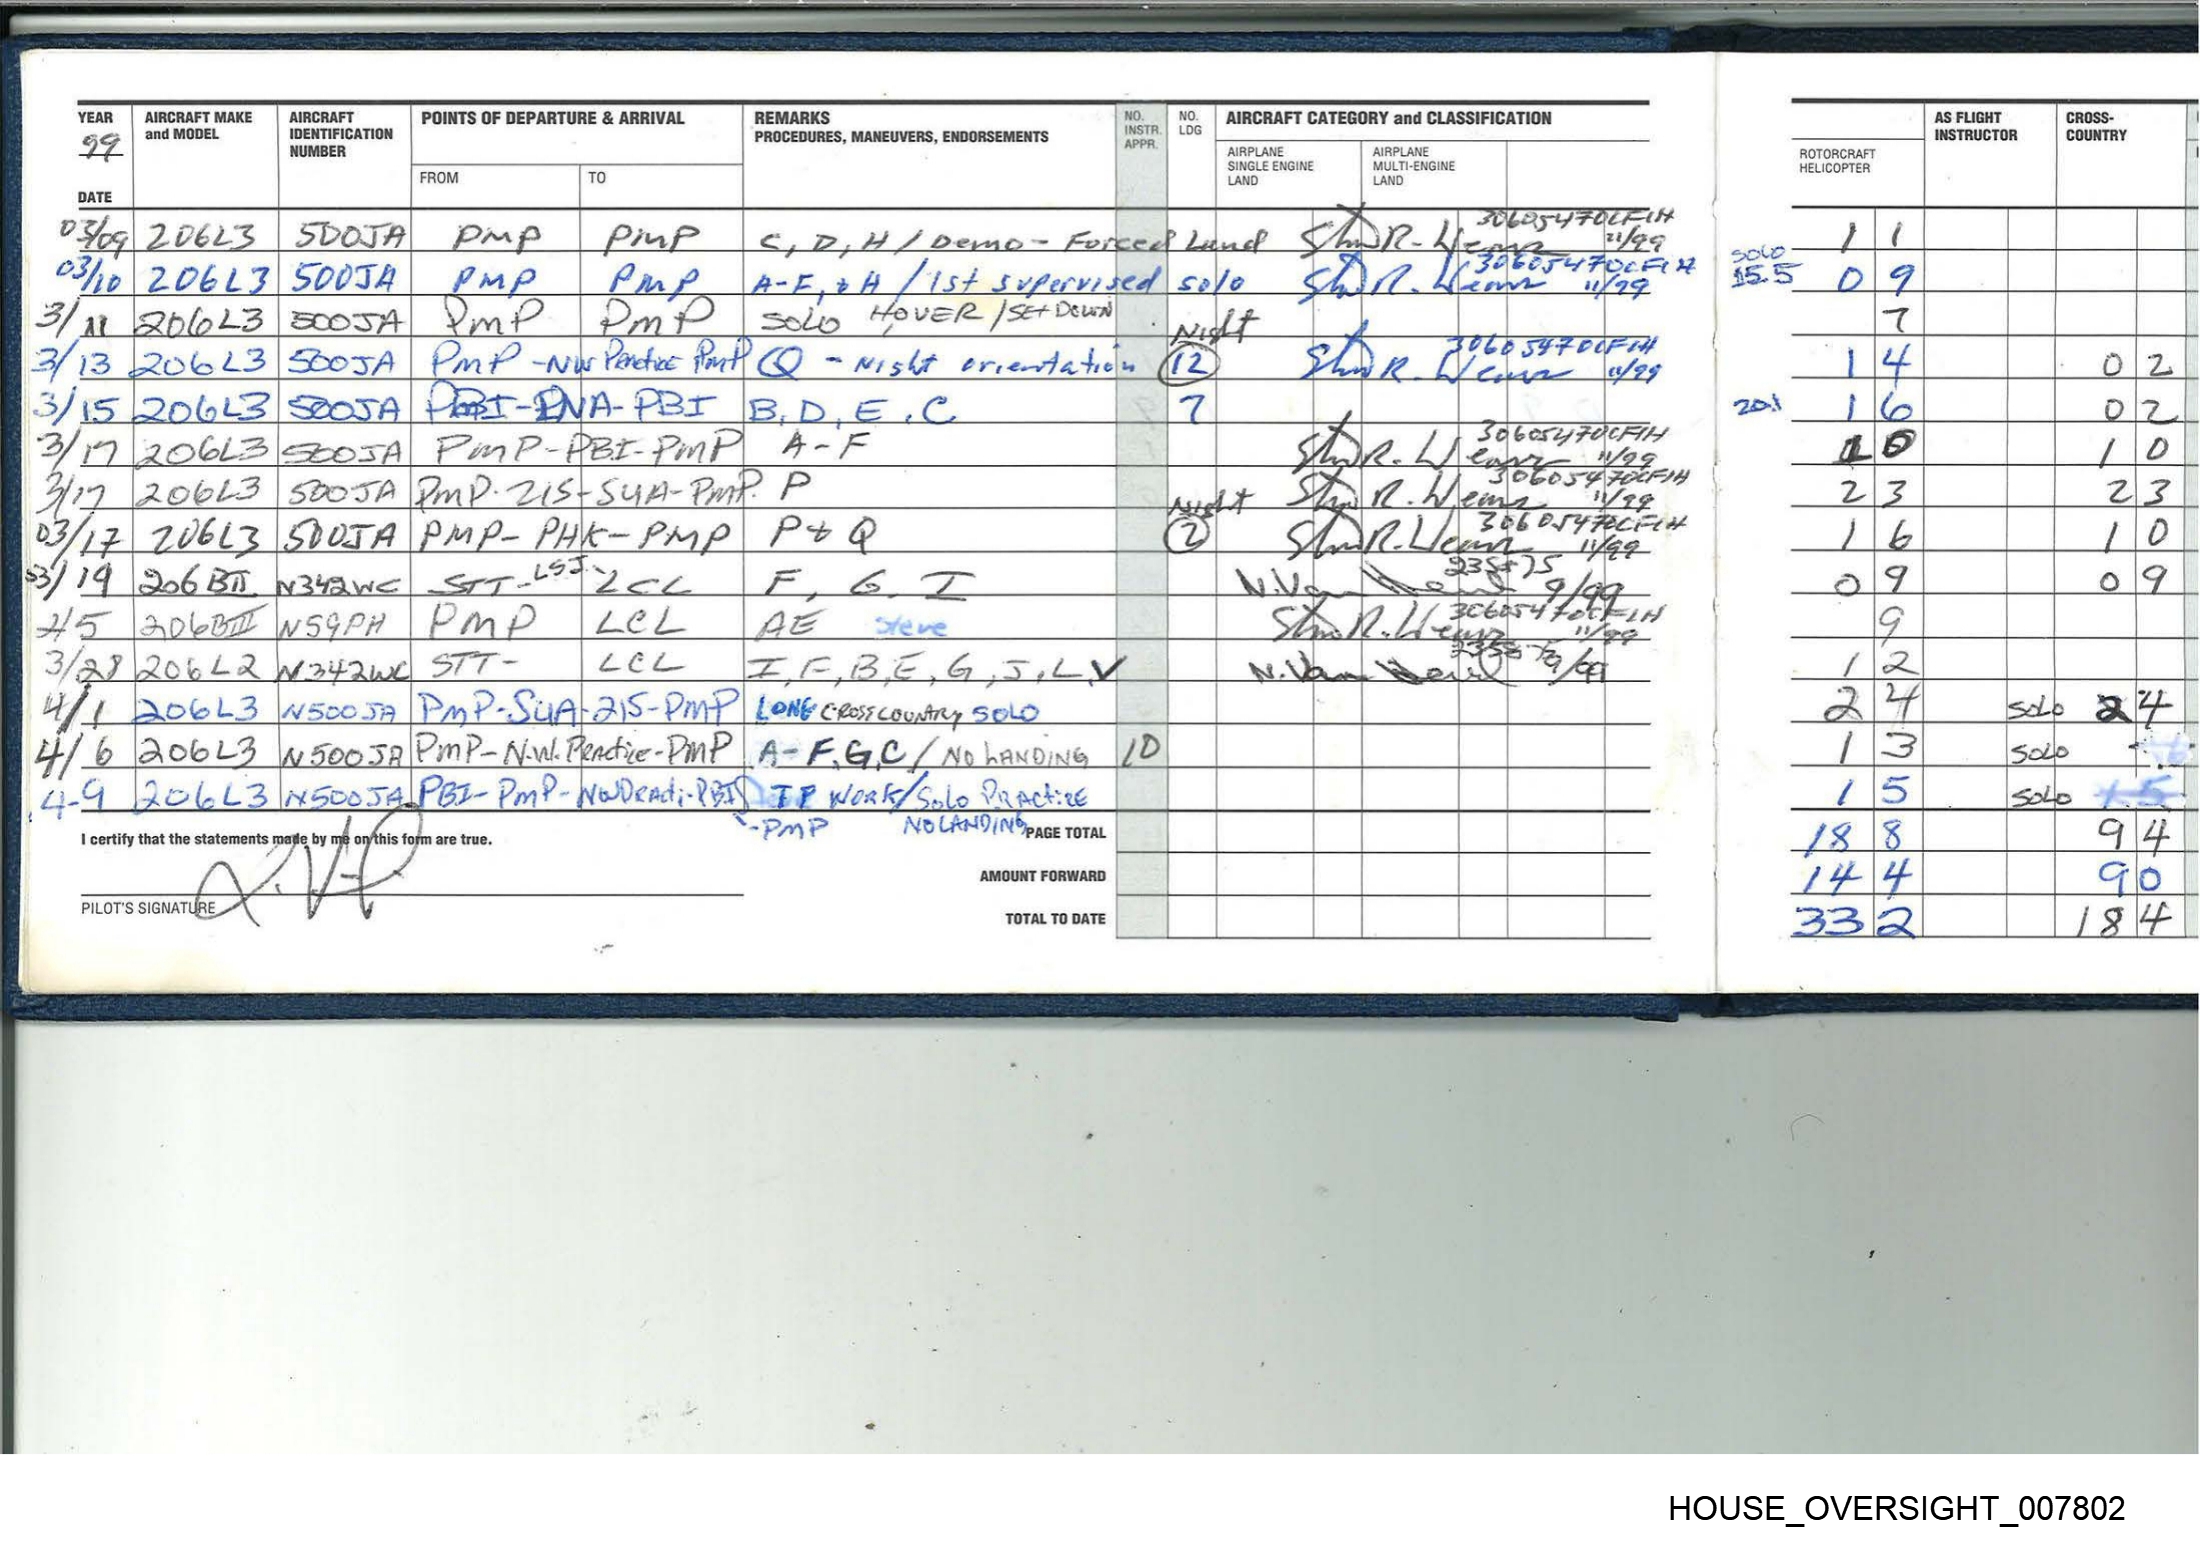 YEAR AIRCRAFT MAKE AIRCRAFT POINTS OF DEPARTURE & ARRIVAL REMARKS NO. NO. AIRCRAFT CATEGORY and CLASSIFICATION AS FLIGHT CROSS-
99 and MODEL IDENTIFICATION PROCEDURES, MANEUVERS, ENDORSEMENTS INSTR. LDG INSTRUCTOR COUNTRY
NUMBER APPR. AIRPLANE AIRPLANE ROTORCRAFT
SINGLE ENGINE MULTI-ENGINE HELICOPTER
DATE FROM TO LAND LAND
03/09 206L3 500JA PMP PMP C, D, H / Demo - Forced Land 30605470CFIH 11/99 1 1
03/10 206L3 500JA PMP PMP A-F, & H / 1st supervised solo 30605470CFIH 11/99 solo 15.5 0 9
3/11 206L3 500JA PMP PMP SOLO HOVER / SET DOWN 7
3/13 206L3 500JA PMP - NW Practice PMP Q - Night orientation Night 12 30605470CFIH 11/99 1 4 0 2
3/15 206L3 500JA PBI - PBI B, D, E, C 7 20.1 1 6 0 2
3/17 206L3 500JA PMP-PBI-PMP A-F 30605470CFIH 11/99 1 0 1 0
3/17 206L3 500JA PMP-215-SUA-PMP. P 30605470CFIH 11/99 2 3 2 3
03/17 206L3 500JA PMP- PHK- PMP P & Q Night 2 30605470CFIH 11/99 1 6 1 0
03/19 206BII N342WC STT-LSJ- LCL F, G, I 9/99 0 9 0 9
206BIII N59PH PMP LCL AE Steve 30605470CFIH 11/99 9
3/28 206L2 N342WC STT- LCL I, F, B, E, G, J, L, V 9/99 1 2
4/1 206L3 N500JA PMP-SUA-215-PMP LONG CROSSCOUNTRY SOLO 2 4 SOLO 2 4
4/6 206L3 N500JA PMP-N.W. Practice-PMP A-F, G, C / NO LANDING 10 1 3 SOLO
4-9 206L3 N500JA PBI-PMP-NW Practi-PBI WORK / Solo PRACTICE 1 5 SOLO 1 5
-PMP NO LANDING
I certify that the statements made by me on this form are true. PAGE TOTAL 18 8 9 4
AMOUNT FORWARD 14 4 9 0
PILOT'S SIGNATURE TOTAL TO DATE 33 2 18 4
HOUSE_OVERSIGHT_007802